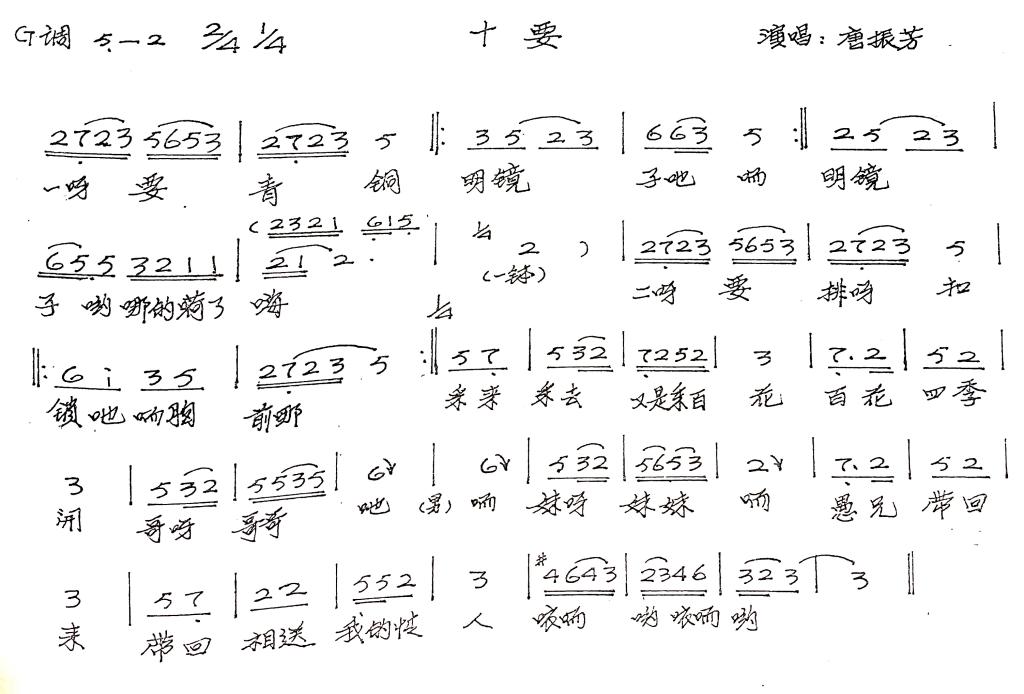 G调 5—2 2/4 1/4 十要 演唱：唐振芳
2723 5653 | 2723 5 ‖: 35 23 | 663 5 :‖ 25 23 |
一呀 要 青 铜 明镜 子吔 哂 明镜
(2321 615
655 3211 | 21 2· | 1/4 2 ) | 2723 5653 | 2723 5
子 哟 哪的 嗬 (一钵) 二呀 要 排呀 扣
1/4
‖: 6 i 35 | 2723 5 :‖ 57 | 532 | 7252 | 3 | 7·2 | 52 |
锁吔 哂胸 前那 采来 采去 又是采百 花 百花 四季
3 | 532 | 5535 | 6ᵛ | 6ᵛ | 532 | 5653 | 2ᵛ | 7·2 | 52 |
开 哥呀 哥哥 吔 (男) 哂 妹呀 妹妹 哂 愚兄 带回
3 | 57 | 22 | 552 | 3 | #4643 | 2346 | 323 | 3 ‖
来 带回 相送 我的 人 哝哂 哟哝哂 哟